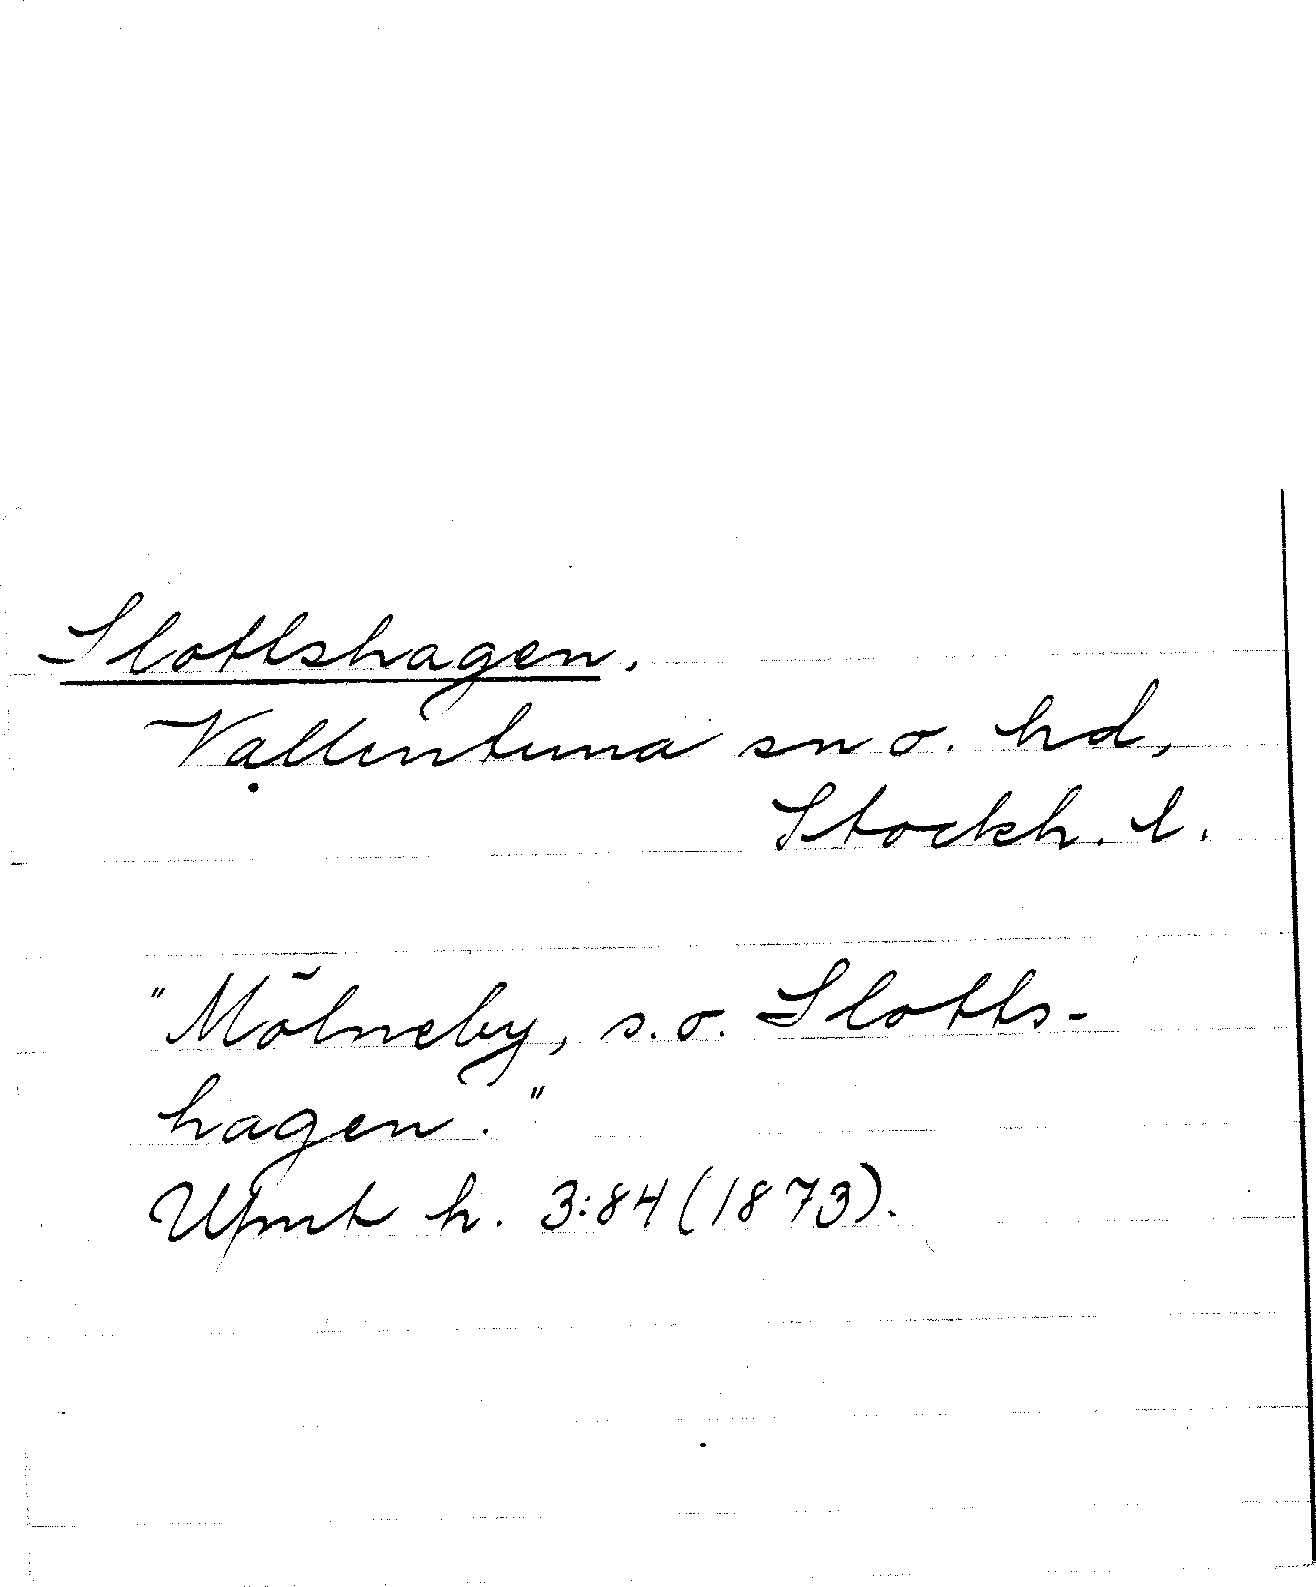 Slottshagen.
Vallentuna sn o. hd,
Stockh. l.
"Mölneby, s.o. Slotts-
hagen."
Ufmt h. 3:84 (1873).